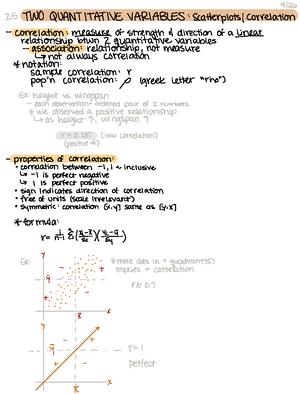 9/26
2.5 TWO QUANTITATIVE VARIABLES: Scatterplots | Correlation
- correlation: measure of strength & direction of a linear
relationship btwn 2 quantitative variables
- association: relationship, not measure
↳ not always correlation
* notation:
sample correlation: r
pop'n correlation: ρ (greek letter "rho")
Ex: height vs wingspan
- each observation: ordered pair of 2 numbers
* we observed a positive relationship
↳ as height ↑, wingspan ↑
(low correlation)
(positive #)
- properties of correlation:
• correlation between -1, 1 ~ inclusive
↳ -1 is perfect negative
↳ 1 is perfect positive
• sign indicates direction of correlation
• free of units (scale irrelevant)
• symmetric: correlation [x,y] same as [y,x]
* formula:
Ex:
y
* more dots in + quadrant(s)
implies + correlation
r≈0.7
x
y
r=1
perfect
x